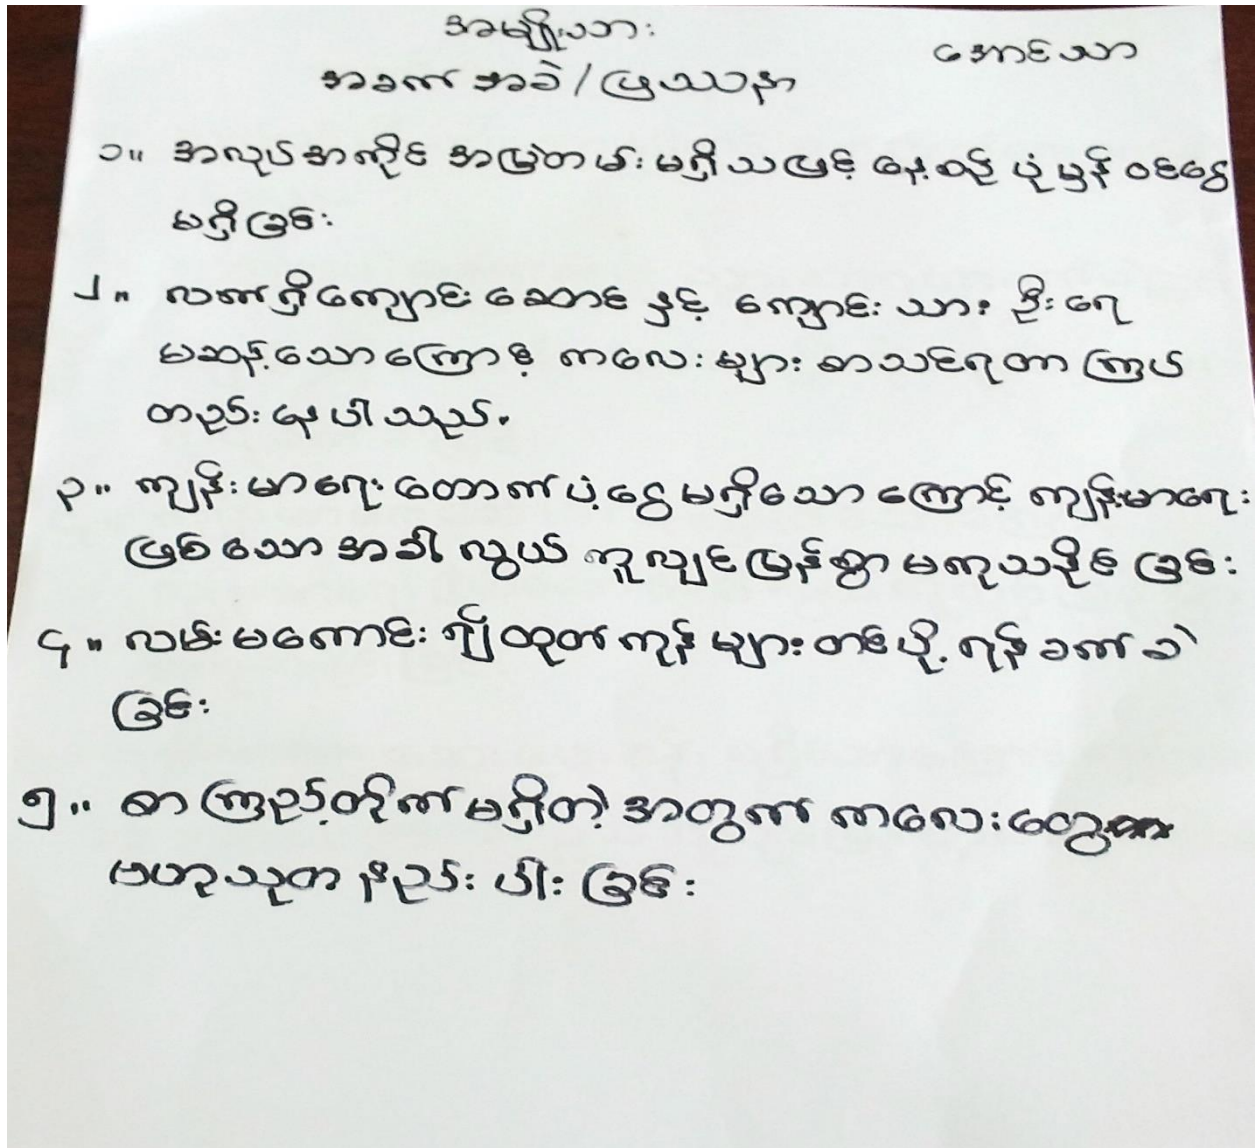 အမျိုးသား
အောင်သာ
အခက်အခဲ/ပြဿနာ
၁။ အလုပ်အကိုင် အမြဲတမ်း မရှိသဖြင့် နေ့စဉ် ပုံမှန် ဝင်ငွေ
မရှိခြင်း
၂။ လက်ရှိကျောင်း ဆောင် နှင့် ကျောင်း သား ဦးရေ
မဆန့်သောကြောင့် ကလေးများ စာသင်ရတာ ကြပ်
တည်း နေပါသည်.
၃။ ကျန်းမာရေး ထောက်ပံ့ငွေ မရှိသော ကြောင့် ကျန်းမာရေး
ဖြစ်သော အခါ လွယ် ကူလျင်မြန်စွာ မကုသနိုင် ခြင်း
၄။ လမ်းမကောင်း ၍ ထုတ်ကုန် များ တင်ပို့ ရန် ခက်ခဲ
ခြင်း
၅။ စာကြည့်တိုက် မရှိတဲ့ အတွက် ကလေးတွေ
ဗဟုသုတ နည်း ပါး ခြင်း